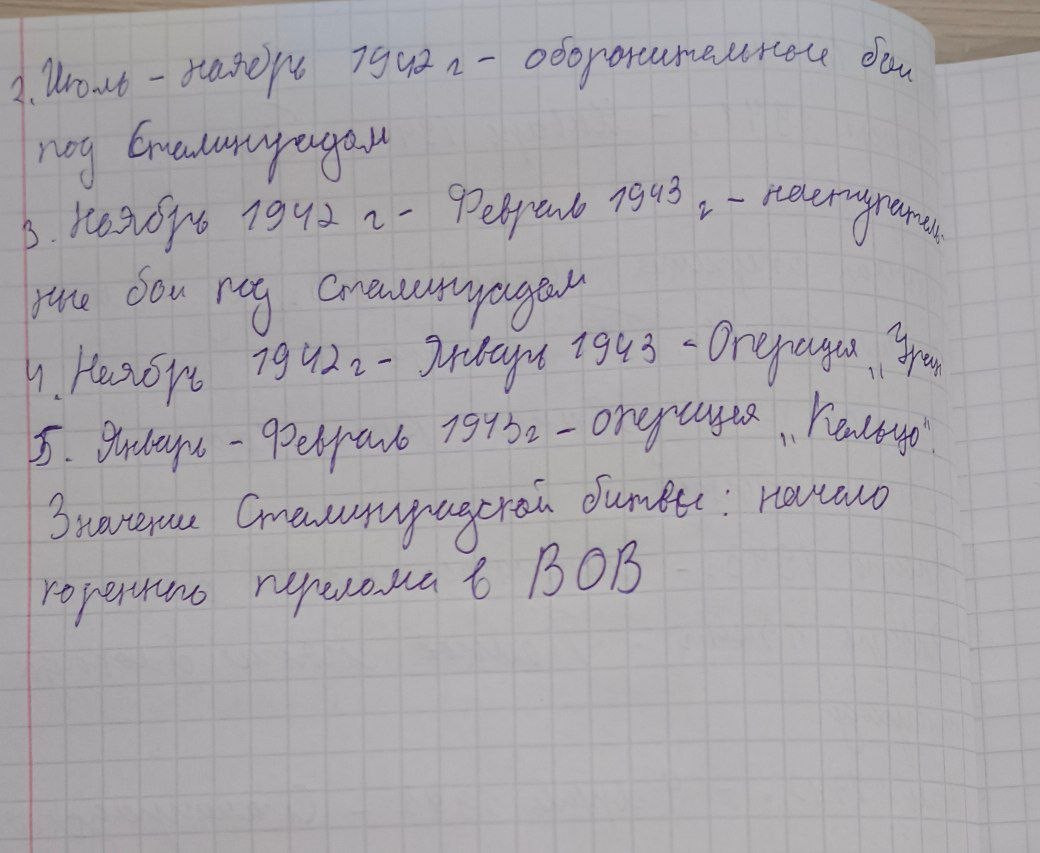 2. Июль - ноябрь 1942 г - оборонительные бои
под Сталинградом
3. Ноябрь 1942 г - Февраль 1943 г - наступатель-
ные бои под Сталинградом
4. Ноябрь 1942 г - Январь 1943 - Операция „Уран
5. Январь - Февраль 1943 г - операция „Кольцо".
Значение Сталинградской битвы: начало
коренного перелома в ВОВ